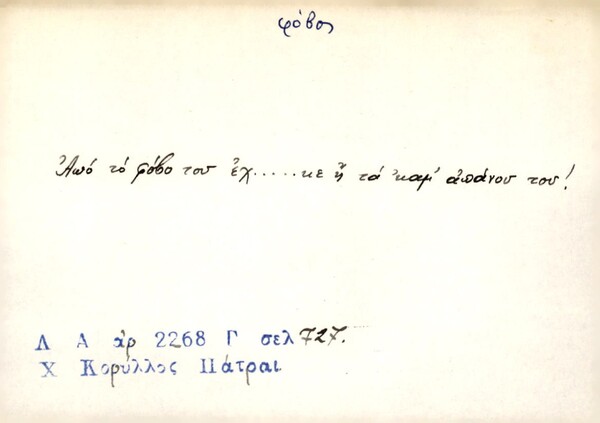 φόβος
Ἀπό τό φόβο του ἐχ.....κε ἤ τά 'καμ' ἀπάνου του!
Λ Α ἀρ 2268 Γ σελ 727.
Χ Κορύλλος Πάτραι